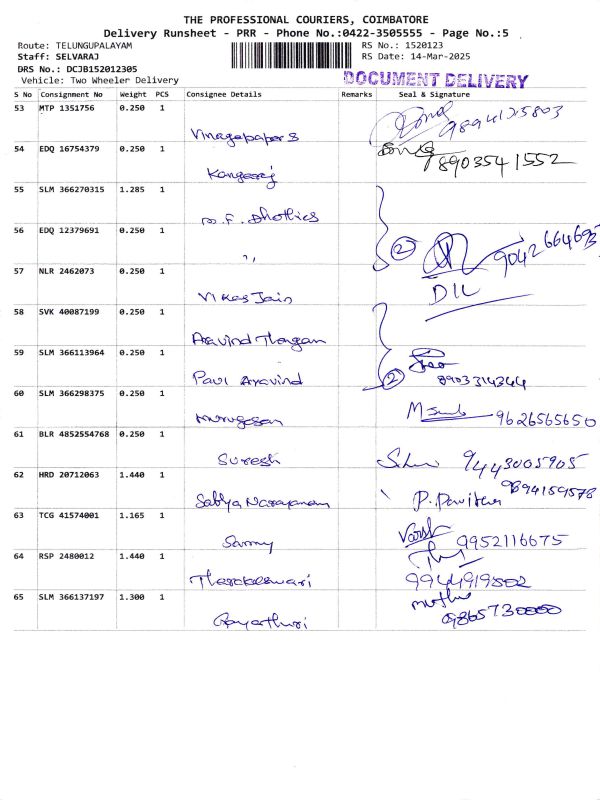 THE PROFESSIONAL COURIERS, COIMBATORE
Delivery Runsheet - PRR - Phone No.:0422-3505555 - Page No.:5
Route: TELUNGUPALAYAM RS No.: 1520123
Staff: SELVARAJ RS Date: 14-Mar-2025
DRS No.: DCJB152012305
Vehicle: Two Wheeler Delivery DOCUMENT DELIVERY
S No Consignment No Weight PCS Consignee Details Remarks Seal & Signature
53 MTP 1351756 0.250 1
Vinagapapers 9894125803
54 EDQ 16754379 0.250 1
Kangaraj 8903541552
55 SLM 366270315 1.285 1
M.F. Dhotties
56 EDQ 12379691 0.250 1
,, 2 9042664693
57 NLR 2462073 0.250 1
Vikas Jain DIL
58 SVK 40087199 0.250 1
Aravind Thangam
59 SLM 366113964 0.250 1
Paul Aravind 2 8903314344
60 SLM 366298375 0.250 1
Murugesan 9626565650
61 BLR 4852554768 0.250 1
Suresh 9443005905
62 HRD 20712063 1.440 1
Sathya Narayanan P. Pavithra 9894159578
63 TCG 41574001 1.165 1
Sammy 9952116675
64 RSP 2480012 1.440 1
Tharakeswari 9944919502
65 SLM 366137197 1.300 1
Gayathuri 9865730000